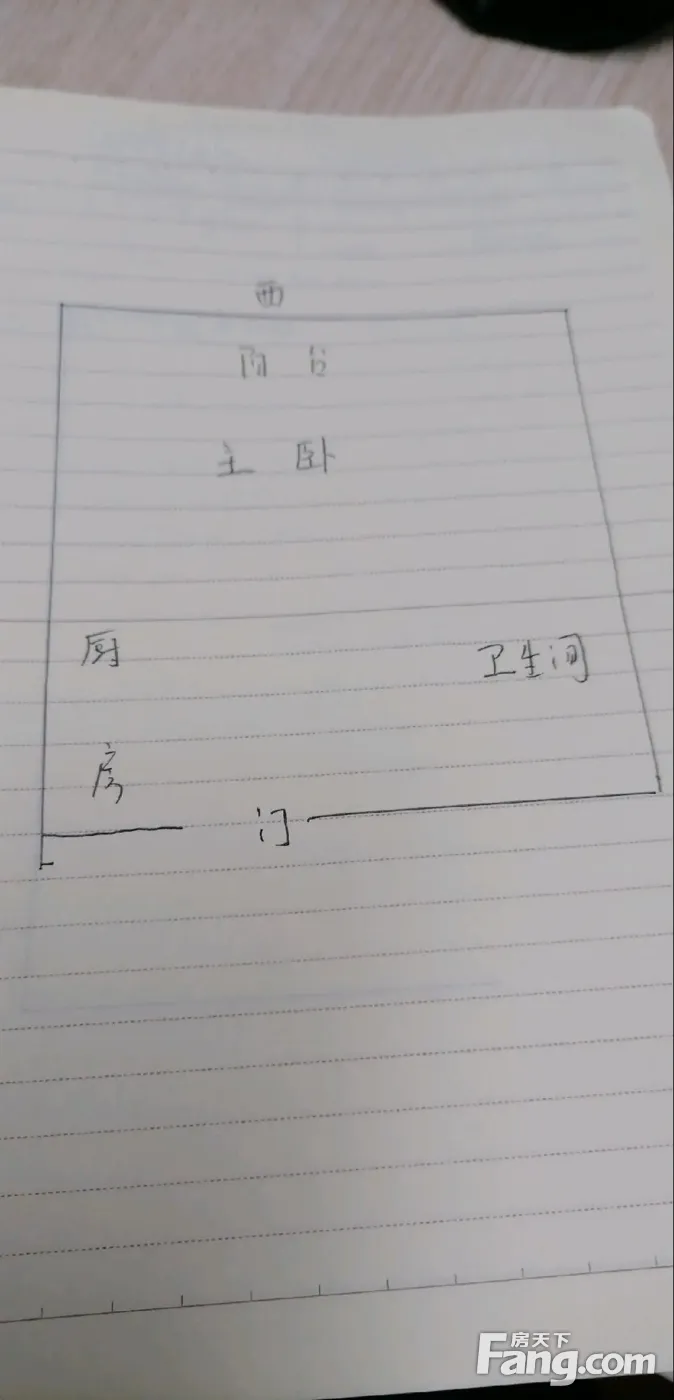 西
阳台
主卧
厨 卫生间
房
门
房天下
Fang.com